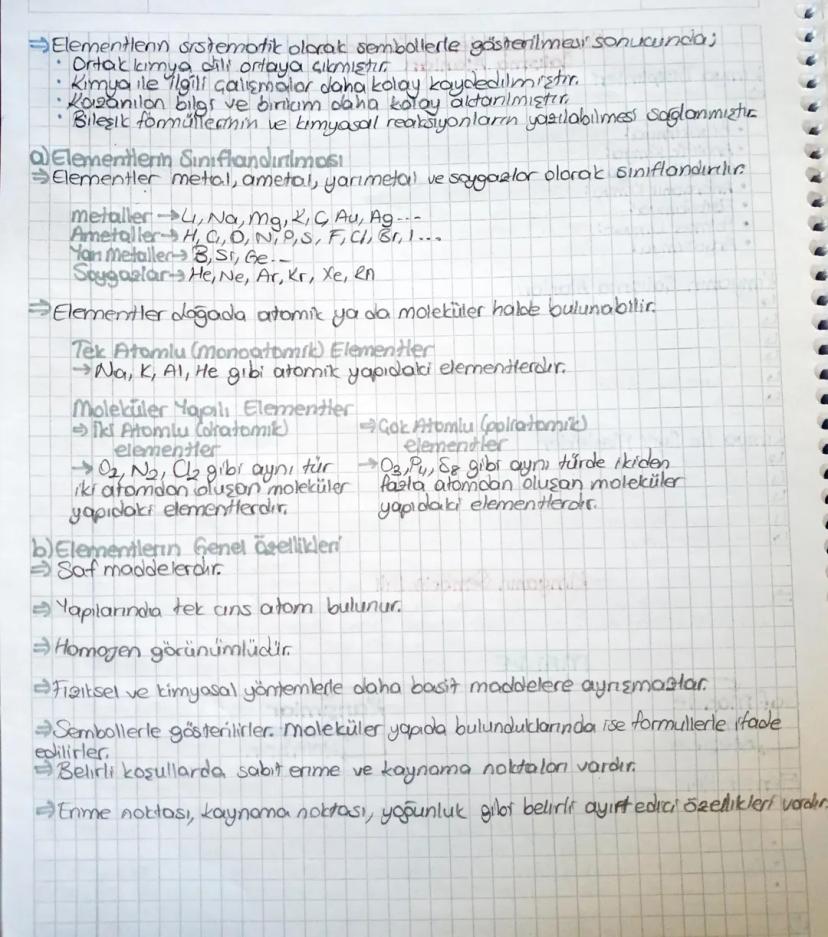 ⇒ Elementlerin sistematik olarak sembollerle gösterilmesi sonucunda;
• Ortak kimya dili ortaya çıkmıştır.
• Kimya ile ilgili çalışmalar daha kolay kaydedilmiştir.
• Kazanılan bilgi ve birikim daha kolay aktarılmıştır.
• Bileşik formüllerinin ve kimyasal reaksiyonların yazılabilmesi sağlanmıştır.
a) Elementlerin Sınıflandırılması
⇒ Elementler metal, ametal, yarımetal ve soygazlar olarak sınıflandırılır.
metaller → Li, Na, Mg, K, Ç, Au, Ag...
Ametaller → H, C, O, N, P, S, F, Cl, Br, I...
Yarı Metaller → B, Si, Ge...
Soygazlar → He, Ne, Ar, Kr, Xe, Rn
⇒ Elementler doğada atomik ya da moleküler halde bulunabilir.
Tek Atomlu (monoatomik) Elementler
→ Na, K, Al, He gibi atomik yapıdaki elementlerdir.
Moleküler Yapılı Elementler
⇒ İki Atomlu (diatomik)
elementler
→ O2, N2, Cl2 gibi aynı tür
iki atomdan oluşan moleküler
yapıdaki elementlerdir.
⇒ Çok Atomlu (poliatomik)
elementler
→ O3, P4, S8 gibi aynı türde ikiden
fazla atomdan oluşan moleküler
yapıdaki elementlerdir.
b) Elementlerin Genel Özellikleri
⇒ Saf maddelerdir.
⇒ Yapılarında tek cins atom bulunur.
⇒ Homojen görünümlüdür.
⇒ Fiziksel ve kimyasal yöntemlerle daha basit maddelere ayrışmazlar.
⇒ Sembollerle gösterilirler. Moleküler yapıda bulunduklarında ise formullerle ifade
edilirler.
⇒ Belirli koşullarda sabit erime ve kaynama noktaları vardır.
⇒ Erime noktası, kaynama noktası, yoğunluk gibi belirli ayırt edici özellikleri vardır.